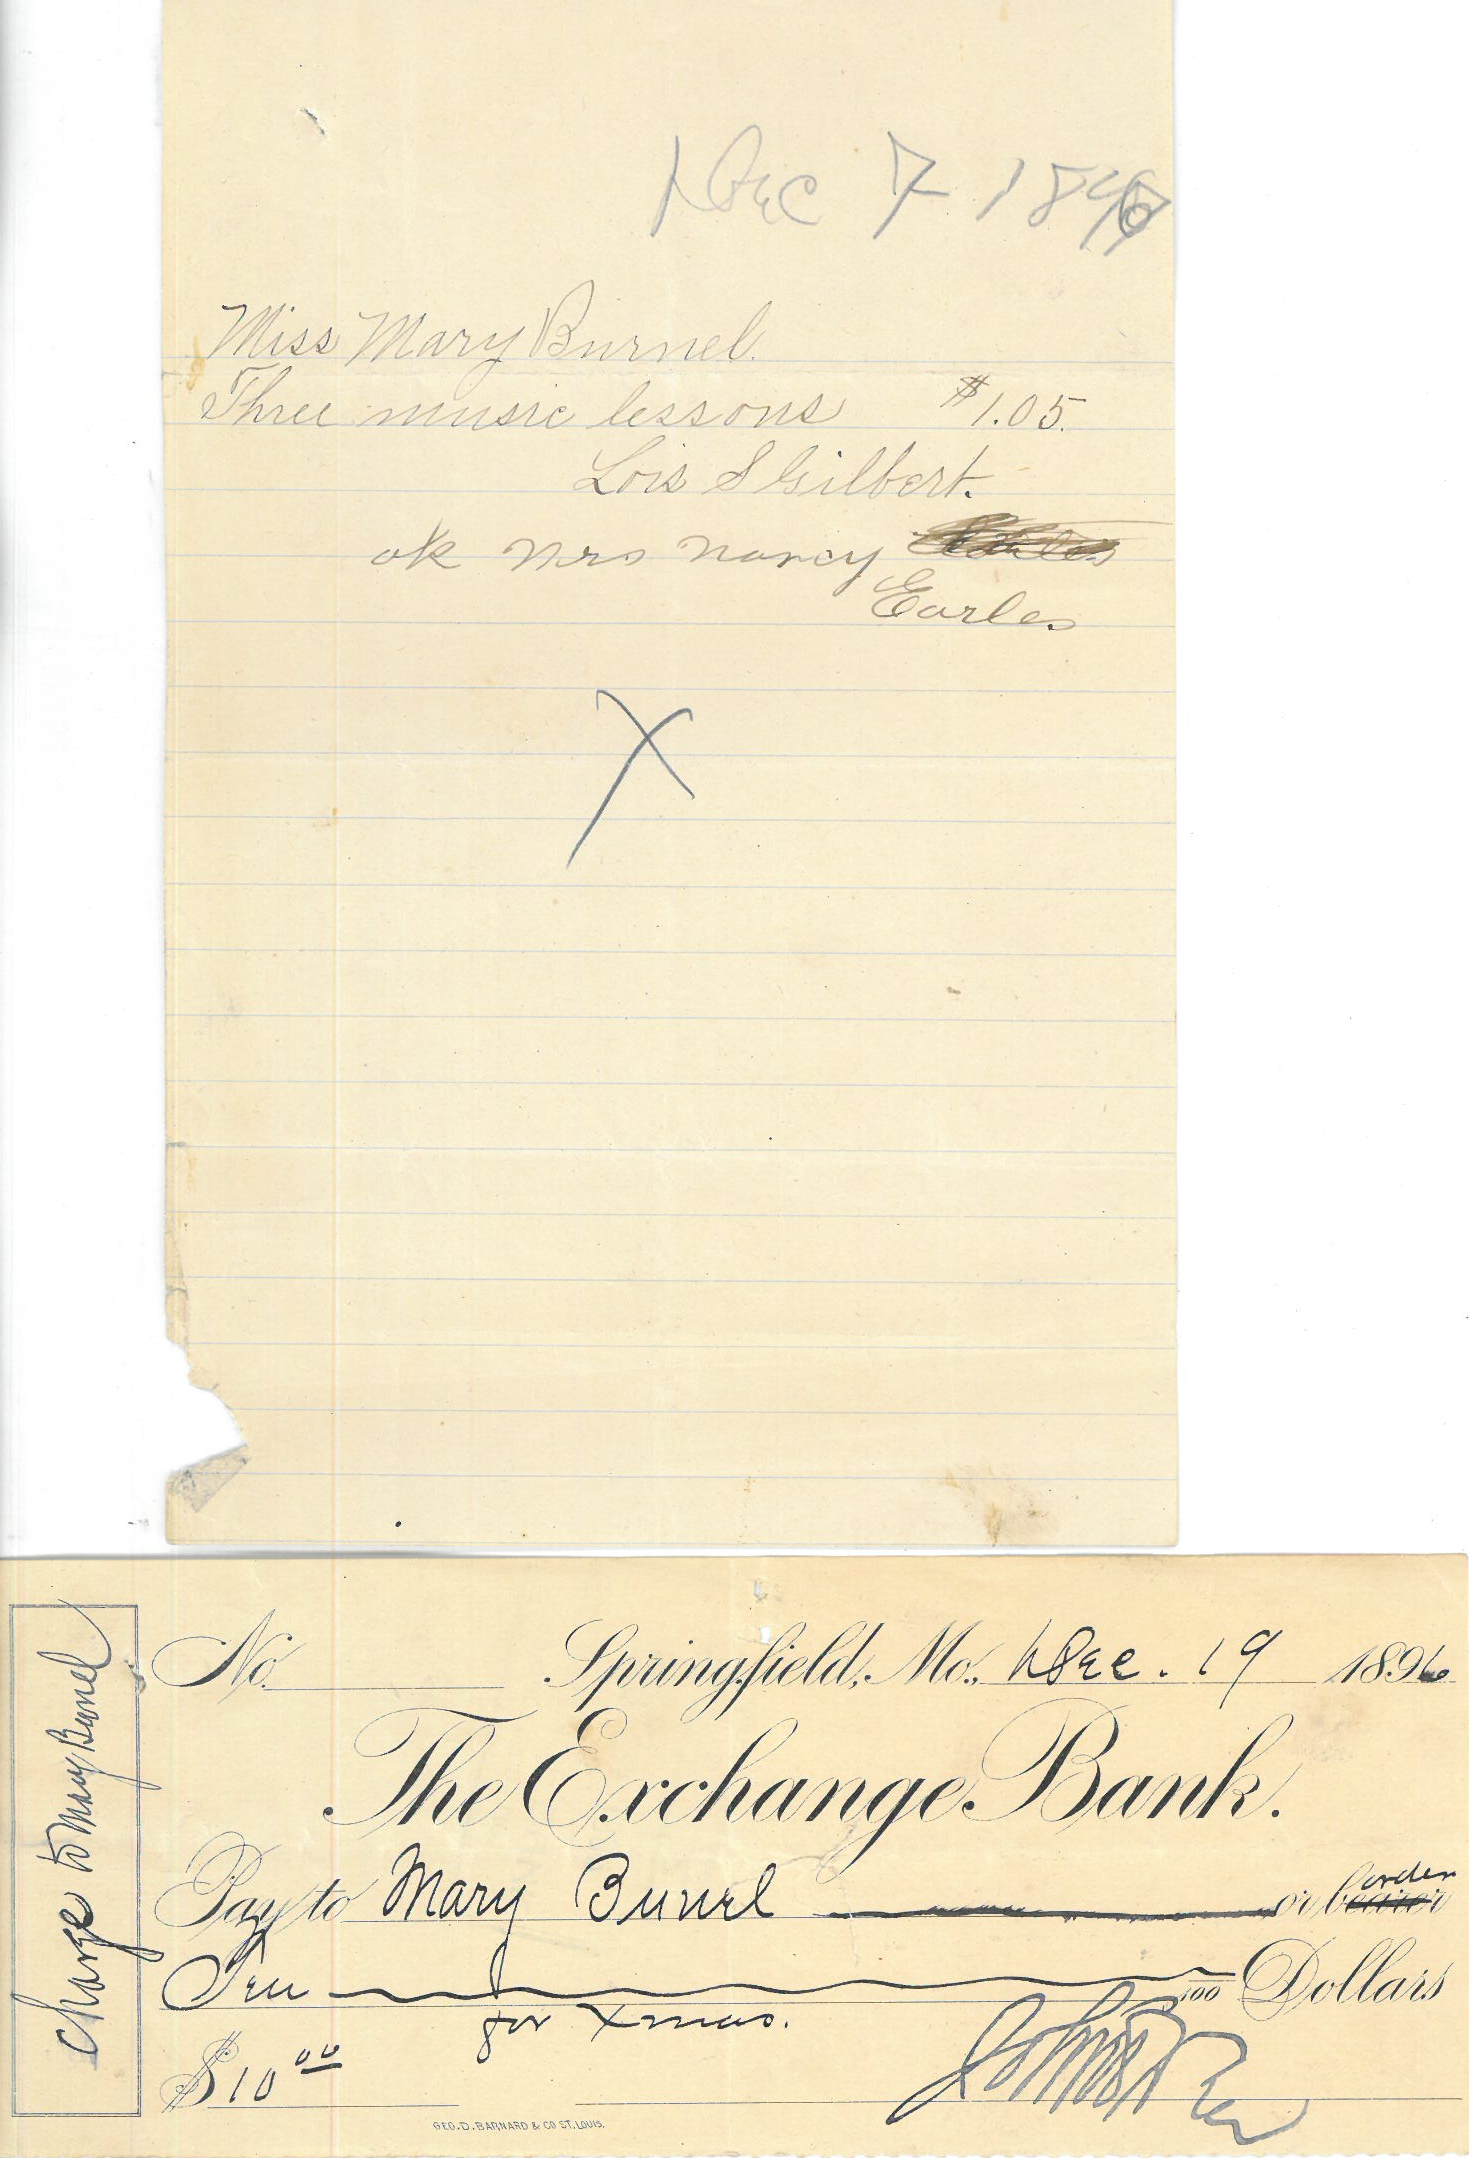 Dec 7 1896
Miss Mary Burnel.
Three music lessons $1.05.
Lois S Gilbert.
ok Mrs Nancy
Earles
X
No. Springfield, Mo., Dec. 19 1896
The Exchange Bank.
Pay to Mary Burnel or bearer order
Ten 100 Dollars
for Xmas.
$10 00
GEO. D. BARNARD & CO ST. LOUIS.
Charge to Mary Burnel